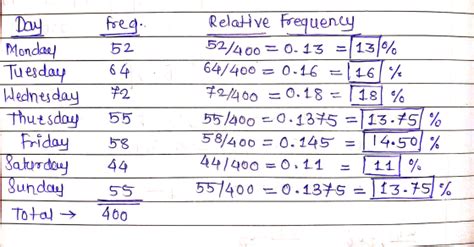 Day Freq. Relative Frequency
Monday 52 52/400 = 0.13 = 13 %
Tuesday 64 64/400 = 0.16 = 16 %
Wednesday 72 72/400 = 0.18 = 18 %
Thutsday 55 55/400 = 0.1375 = 13.75 %
Friday 58 58/400 = 0.145 = 14.50 %
Saturday 44 44/400 = 0.11 = 11 %
Sunday 55 55/400 = 0.1375 = 13.75 %
Total → 400